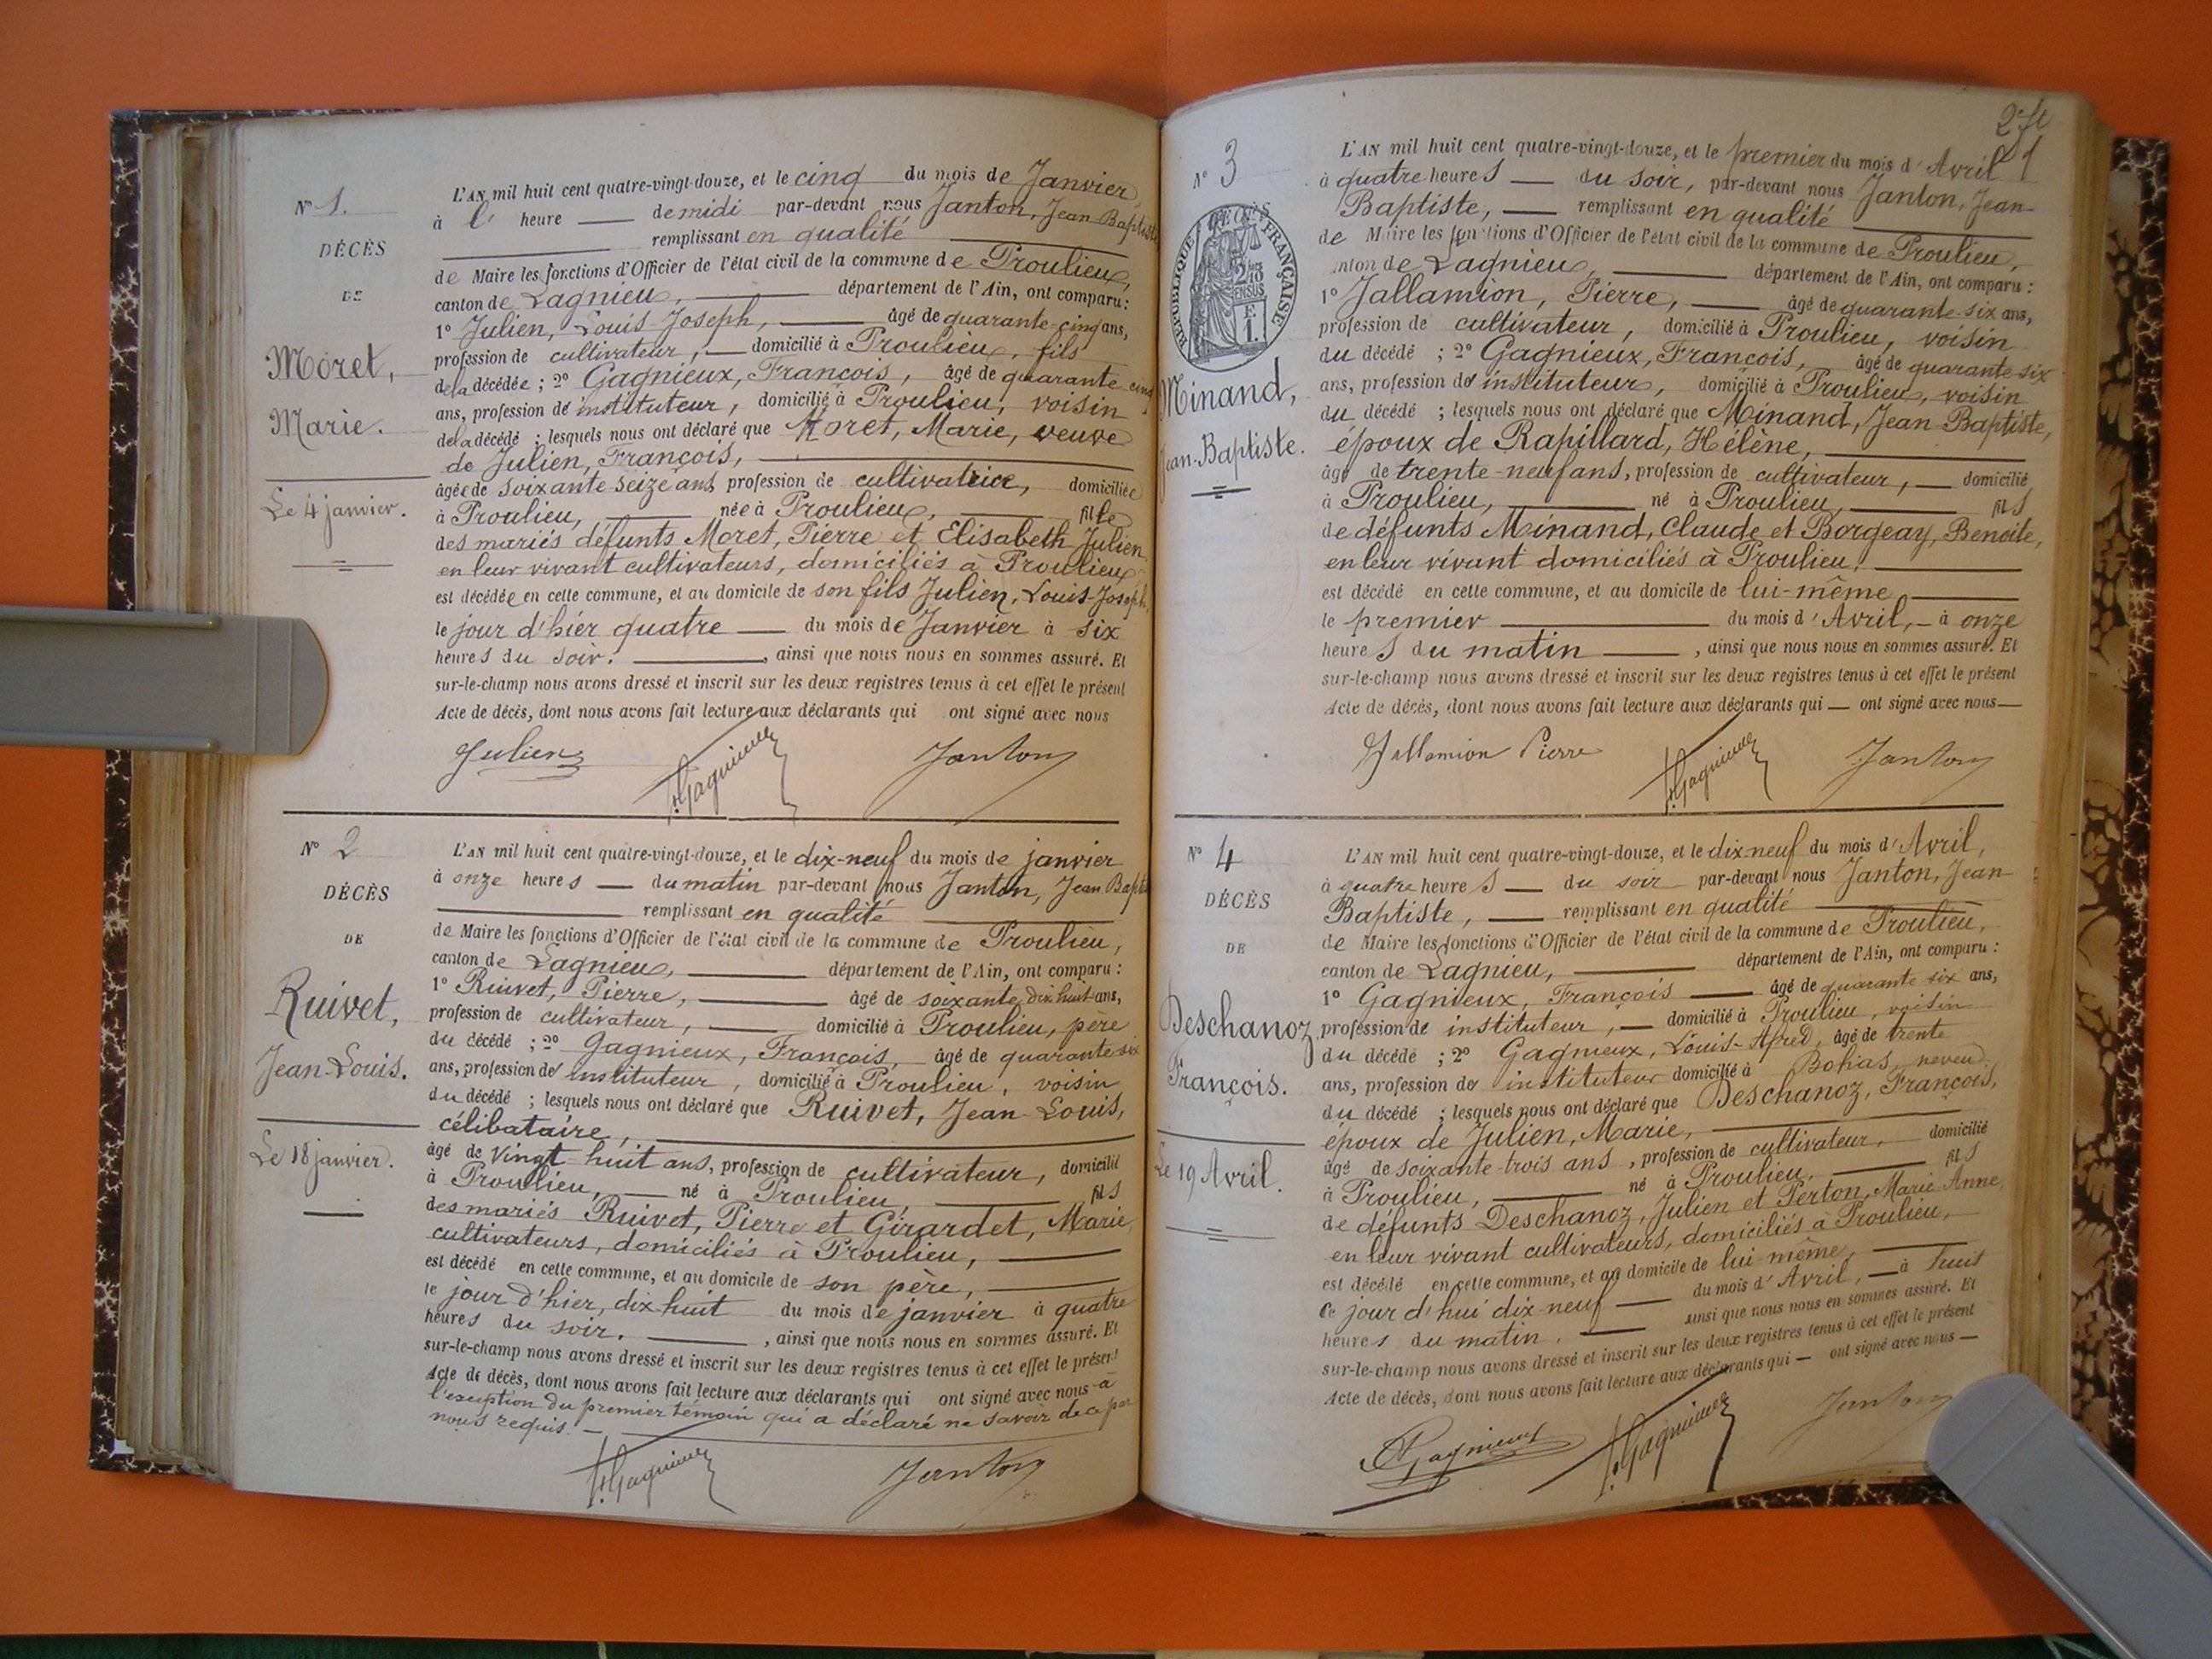 N° 1.
DÉCÈS
DE
Moret,
Marie.
Le 4 janvier.
L'AN mil huit cent quatre-vingt-douze, et le cinq du mois de Janvier,
à l' heure de midi par-devant nous Janton, Jean-Baptiste
remplissant en qualité
de Maire les fonctions d'Officier de l'état civil de la commune de Proulieu,
canton de Lagnieu, département de l'Ain, ont comparu :
1° Julien, Louis-Joseph, âgé de quarante-cinq ans,
profession de cultivateur, domicilié à Proulieu, fils
de la décédée ; 2° Gagnieux, François, âgé de quarante cinq
ans, profession de instituteur, domicilié à Proulieu, voisin
de la décédé ; lesquels nous ont déclaré que Moret, Marie, veuve
de Julien, François,
âgée de soixante-seize ans, profession de cultivatrice, domiciliée
à Proulieu, née à Proulieu, fille
des mariés défunts Moret, Pierre et Elisabeth Julien
en leur vivant cultivateurs, domiciliés à Proulieu
est décédée en cette commune, et au domicile de son fils Julien, Louis-Joseph,
le jour d'hier quatre du mois de Janvier à six
heures du soir. , ainsi que nous nous en sommes assuré. Et
sur-le-champ nous avons dressé et inscrit sur les deux registres tenus à cet effet le présent
Acte de décès, dont nous avons fait lecture aux déclarants qui ont signé avec nous
Julien F. Gagnieux Janton
N° 2
DÉCÈS
DE
Ruivet,
Jean-Louis.
Le 18 janvier.
L'AN mil huit cent quatre-vingt-douze, et le dix-neuf du mois de janvier
à onze heures du matin par-devant nous Janton, Jean Bapti
remplissant en qualité
de Maire les fonctions d'Officier de l'état civil de la commune de Proulieu,
canton de Lagnieu, département de l'Ain, ont comparu :
1° Ruivet, Pierre, âgé de soixante dix huit ans,
profession de cultivateur, domicilié à Proulieu, père
du décédé ; 2° Gagnieux, François, âgé de quarante six
ans, profession de instituteur, domicilié à Proulieu, voisin
du décédé ; lesquels nous ont déclaré que Ruivet, Jean-Louis,
célibataire,
âgé de vingt-huit ans, profession de cultivateur, domicilié
à Proulieu, né à Proulieu, fils
des mariés Ruivet, Pierre et Girardet, Marie,
cultivateurs, domiciliés à Proulieu,
est décédé en cette commune, et au domicile de son père,
le jour d'hier, dix huit du mois de janvier à quatre
heures du soir. , ainsi que nous nous en sommes assuré. Et
sur-le-champ nous avons dressé et inscrit sur les deux registres tenus à cet effet le présent
Acte de décès, dont nous avons fait lecture aux déclarants qui ont signé avec nous à
l'exeption du premier témoin qui a déclaré ne savoir de ce par
nous requis.
F. Gagnieux Janton
N° 3
RÉPUBLIQUE FRANÇAISE
Minand,
Jean-Baptiste.
L'AN mil huit cent quatre-vingt-douze, et le premier du mois d'Avril
à quatre heures du soir, par-devant nous Janton, Jean-
Baptiste, remplissant en qualité
de Maire les fonctions d'Officier de l'état civil de la commune de Proulieu,
canton de Lagnieu, département de l'Ain, ont comparu :
1° Jallamion, Pierre, âgé de quarante-six ans,
profession de cultivateur, domicilié à Proulieu, voisin
du décédé ; 2° Gagnieux, François, âgé de quarante-six
ans, profession de instituteur, domicilié à Proulieu, voisin
du décédé ; lesquels nous ont déclaré que Minand, Jean-Baptiste,
époux de Rapillard, Hélène,
âgé de trente-neuf ans, profession de cultivateur, domicilié
à Proulieu, né à Proulieu, fils
de défunts Minand, Claude et Borgeay, Benoite,
en leur vivant domiciliés à Proulieu,
est décédé en cette commune, et au domicile de lui-même
le premier du mois d'Avril, à onze
heures du matin , ainsi que nous nous en sommes assuré. Et
sur-le-champ nous avons dressé et inscrit sur les deux registres tenus à cet effet le présent
Acte de décès, dont nous avons fait lecture aux déclarants qui ont signé avec nous
Jallamion Pierre F. Gagnieux Janton
N° 4
DÉCÈS
DE
Deschanoz
François.
Le 19 Avril.
L'AN mil huit cent quatre-vingt-douze, et le dix-neuf du mois d'Avril,
à quatre heures du soir par-devant nous Janton, Jean-
Baptiste, remplissant en qualité
de Maire les fonctions d'Officier de l'état civil de la commune de Proulieu,
canton de Lagnieu, département de l'Ain, ont comparu :
1° Gagnieux, François âgé de quarante six ans,
profession de instituteur, domicilié à Proulieu, voisin
du décédé ; 2° Gagnieux, Louis-Alfred, âgé de trente
ans, profession de instituteur domicilié à Bohas, neveu
du décédé ; lesquels nous ont déclaré que Deschanoz, François,
époux de Julien, Marie,
âgé de soixante-trois ans, profession de cultivateur, domicilié
à Proulieu, né à Proulieu, fils
de défunts Deschanoz, Julien et Perton, Marie-Anne,
en leur vivant cultivateurs, domiciliés à Proulieu,
est décédé en cette commune, et au domicile de lui-même,
ce jour d'hui dix-neuf du mois d'Avril, à huit
heures du matin. ainsi que nous nous en sommes assuré. Et
sur-le-champ nous avons dressé et inscrit sur les deux registres tenus à cet effet le présent
Acte de décès, dont nous avons fait lecture aux déclarants qui ont signé avec nous
Gagnieux F. Gagnieux Janton